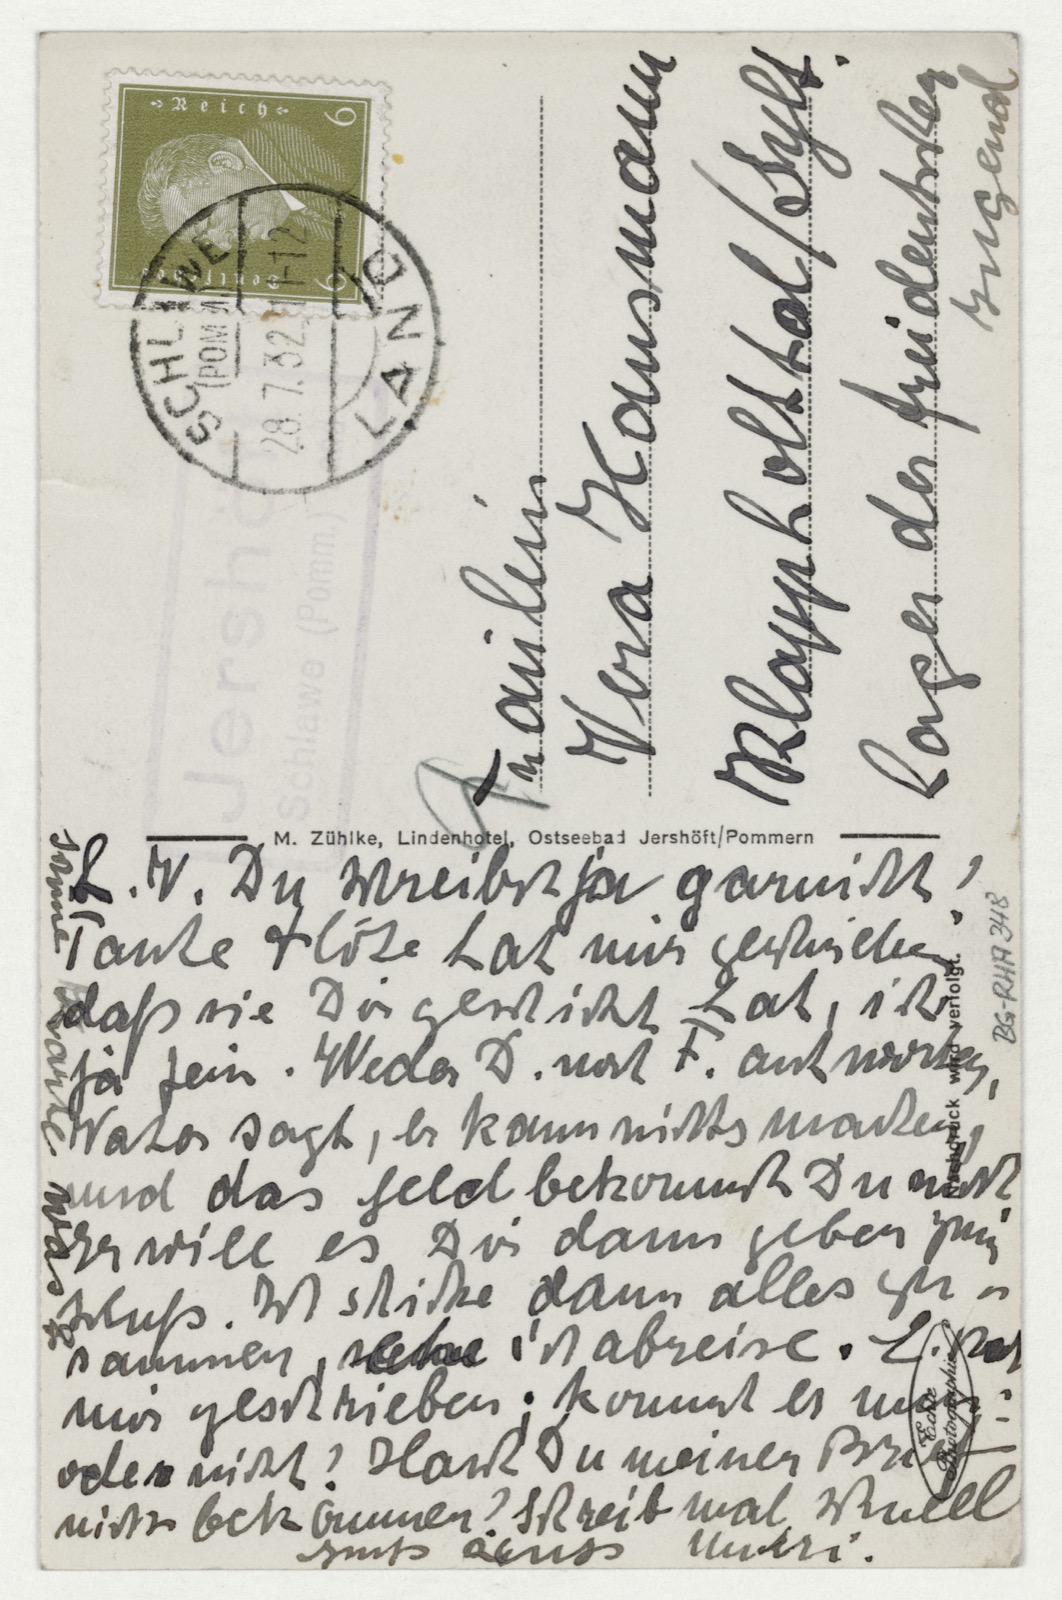 Reich
6
Deutsches
6
SCHLAWE
(POMM)
28.7.32 11-12
LAND
Jershö
Schlawe (Pomm)
Fräulein
Vera Hansmann
Klappholttal/Sylt.
Lager der freideutschen
Jugend
M. Zühlke, Lindenhotel, Ostseebad Jershöft/Pommern
L. V. Du schreibst ja garnicht!
Tante Flöte hat mir geschrieben,
daß sie Dir geschickt hat, ist
ja fein. Weder D. noch F. antworten,
Vater sagt, er kann nichts machen,
und das Geld bekommst Du nicht
Er will es Dir dann geben zum
Schluß. Ich schicke dann alles zu-
sammen, ich abreise. L. hat
mir geschrieben; kommt er nun
oder nicht? Hast Du meinen Brief
nicht bekommen? Schreib mal schnell
Gruß Kuss Mutti.
Nachdruck wird verfolgt.
Echte
Photographie
BG-RHA 348